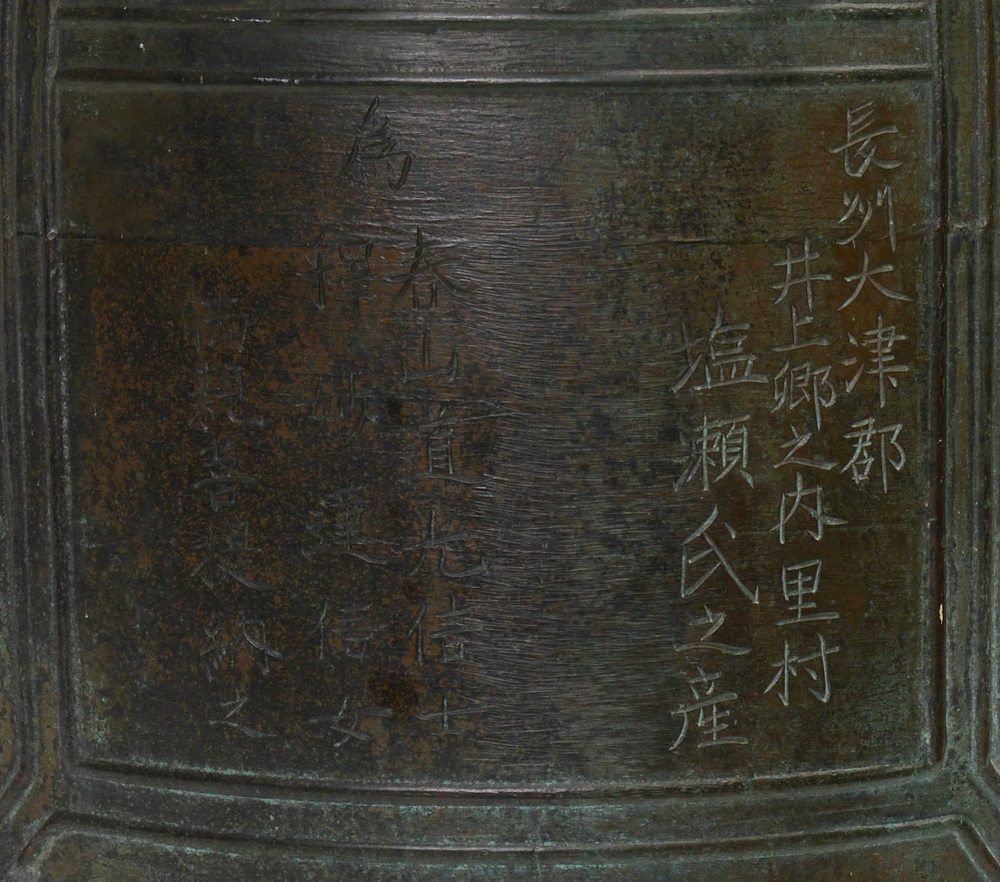 長州大津郡
井上郷之内里村
塩瀬氏之産
為
春山道光信士
釋妙蓮信女
両親菩提納之